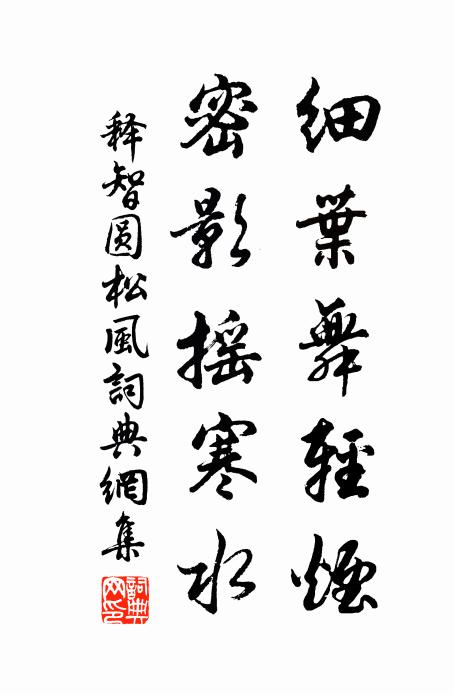 細葉舞輕煙
密影摇寒水
释智圆松風詞典網集
詞典網印